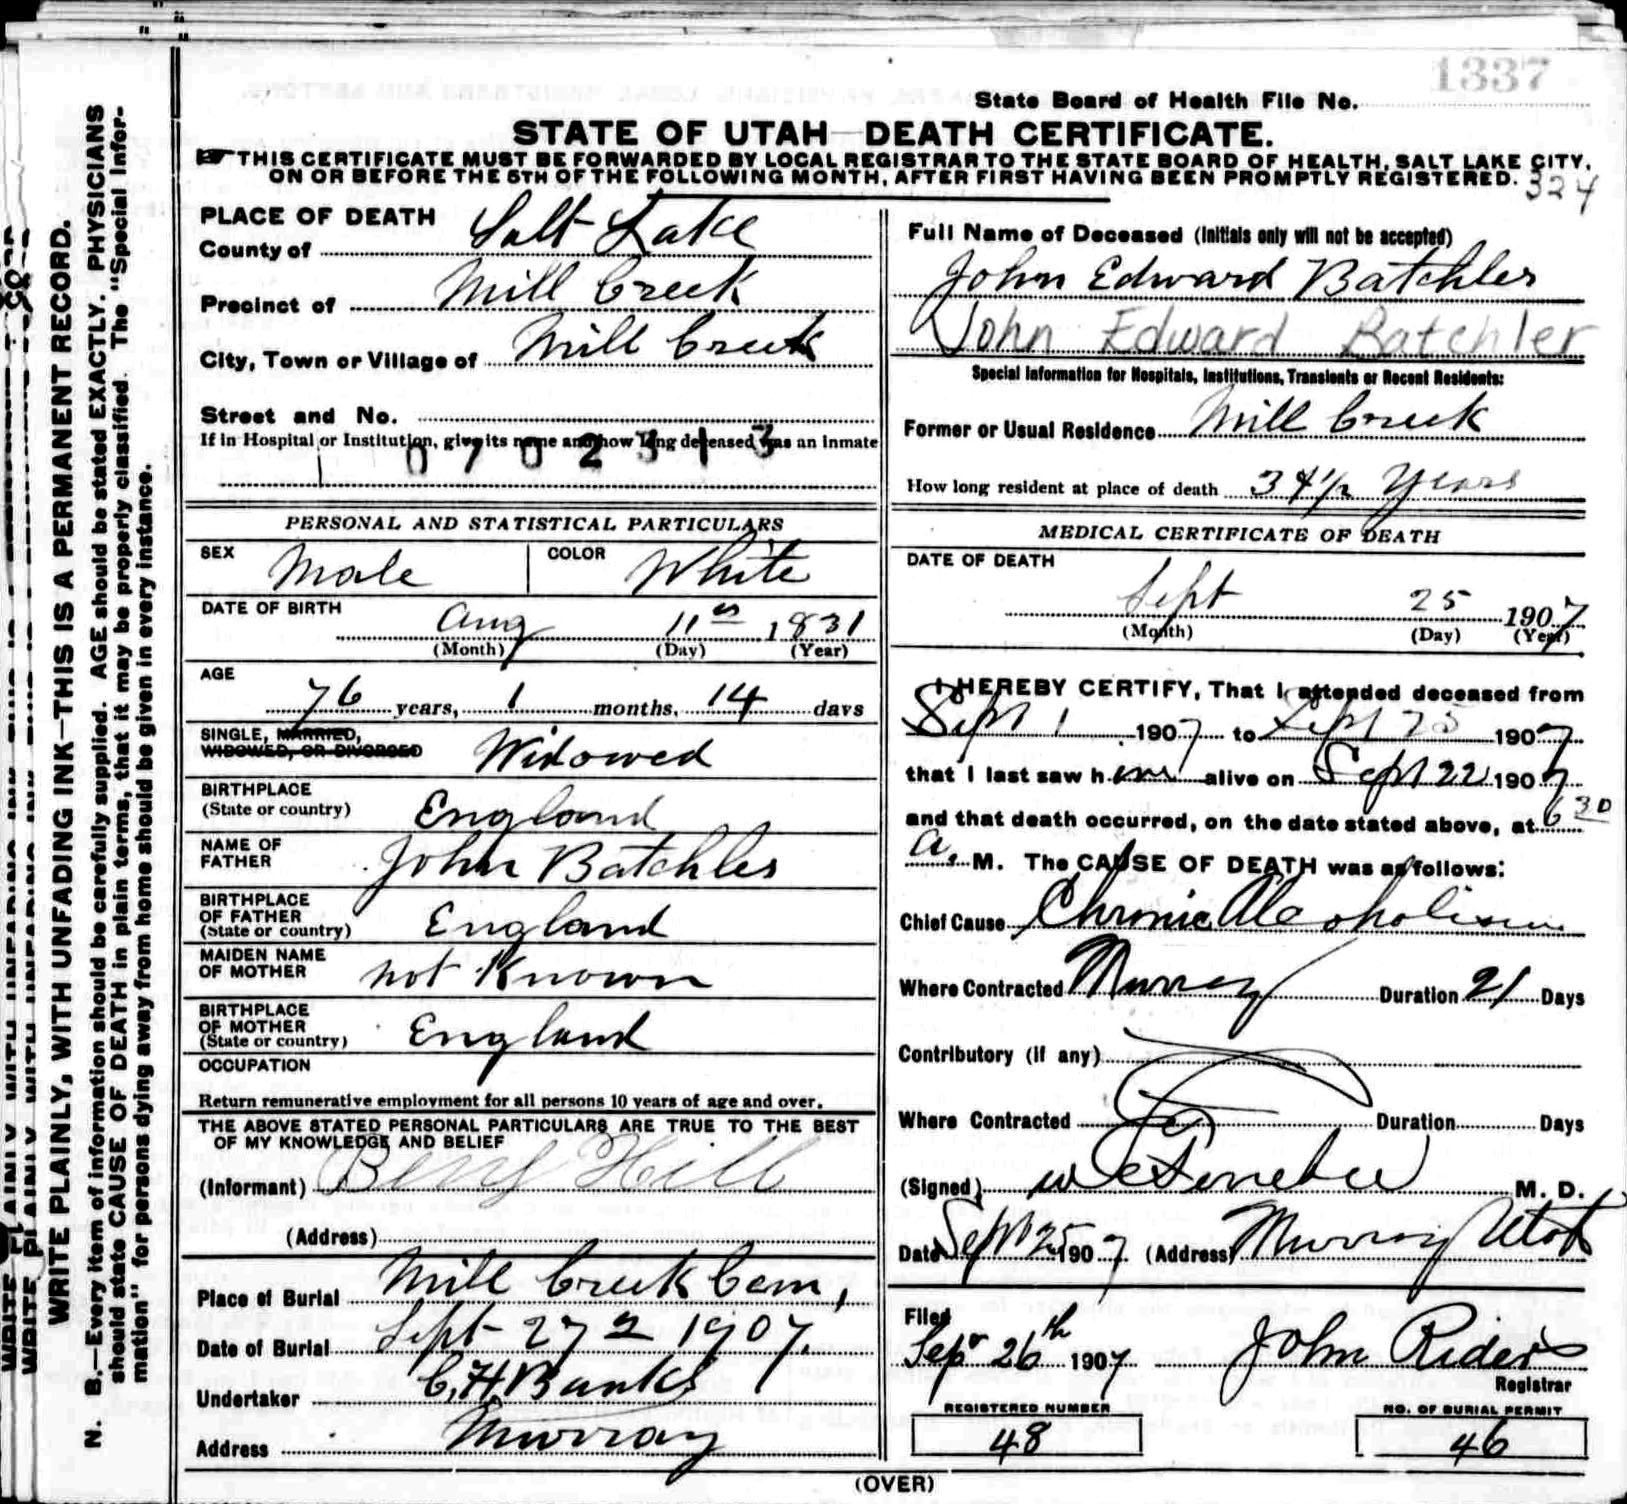 1337
State Board of Health File No.
STATE OF UTAH—DEATH CERTIFICATE.
☞ THIS CERTIFICATE MUST BE FORWARDED BY LOCAL REGISTRAR TO THE STATE BOARD OF HEALTH, SALT LAKE CITY,
ON OR BEFORE THE 5TH OF THE FOLLOWING MONTH, AFTER FIRST HAVING BEEN PROMPTLY REGISTERED.
324
WRITE PLAINLY, WITH UNFADING INK—THIS IS A PERMANENT RECORD.
N. B.—Every item of information should be carefully supplied. AGE should be stated EXACTLY. PHYSICIANS
should state CAUSE OF DEATH in plain terms, that it may be properly classified. The "Special Infor-
mation" for persons dying away from home should be given in every instance.
PLACE OF DEATH
County of Salt Lake
Precinct of Mill Creek
City, Town or Village of Mill Creek
Street and No.
If in Hospital or Institution, give its name and how long deceased was an inmate
0702313
PERSONAL AND STATISTICAL PARTICULARS
SEX Male COLOR White
DATE OF BIRTH
Aug 11 1831
(Month) (Day) (Year)
AGE
76 years, 1 months, 14 days
SINGLE, MARRIED,
WIDOWED, OR DIVORCED Widowed
BIRTHPLACE
(State or country) England
NAME OF
FATHER John Batchler
BIRTHPLACE
OF FATHER
(State or country) England
MAIDEN NAME
OF MOTHER not Known
BIRTHPLACE
OF MOTHER
(State or country) England
OCCUPATION
Return remunerative employment for all persons 10 years of age and over.
THE ABOVE STATED PERSONAL PARTICULARS ARE TRUE TO THE BEST
OF MY KNOWLEDGE AND BELIEF
(Informant) Hill
(Address)
Place of Burial Mill Creek Cem,
Date of Burial Sept 27 1907.
Undertaker C. H. Banks
Address Murray
Full Name of Deceased (Initials only will not be accepted)
John Edward Batchler
John Edward Batchler
Special Information for Hospitals, Institutions, Transients or Recent Residents:
Former or Usual Residence Mill Creek
How long resident at place of death 34½ years
MEDICAL CERTIFICATE OF DEATH
DATE OF DEATH
Sept 25 1907
(Month) (Day) (Year)
I HEREBY CERTIFY, That I attended deceased from
Sept 1 1907 to Sept 25 1907
that I last saw him alive on Sept 22 1907
and that death occurred, on the date stated above, at 6 30
a. M. The CAUSE OF DEATH was as follows:
Chief Cause Chronic Alcoholism
Where Contracted Murray Duration 21 Days
Contributory (if any)
Where Contracted Duration Days
(Signed) M. D.
Date Sept 25 1907 (Address) Murray Utah
Filed
Sep 26th 1907 John Rider
Registrar
REGISTERED NUMBER
48
NO. OF BURIAL PERMIT
46
(OVER)